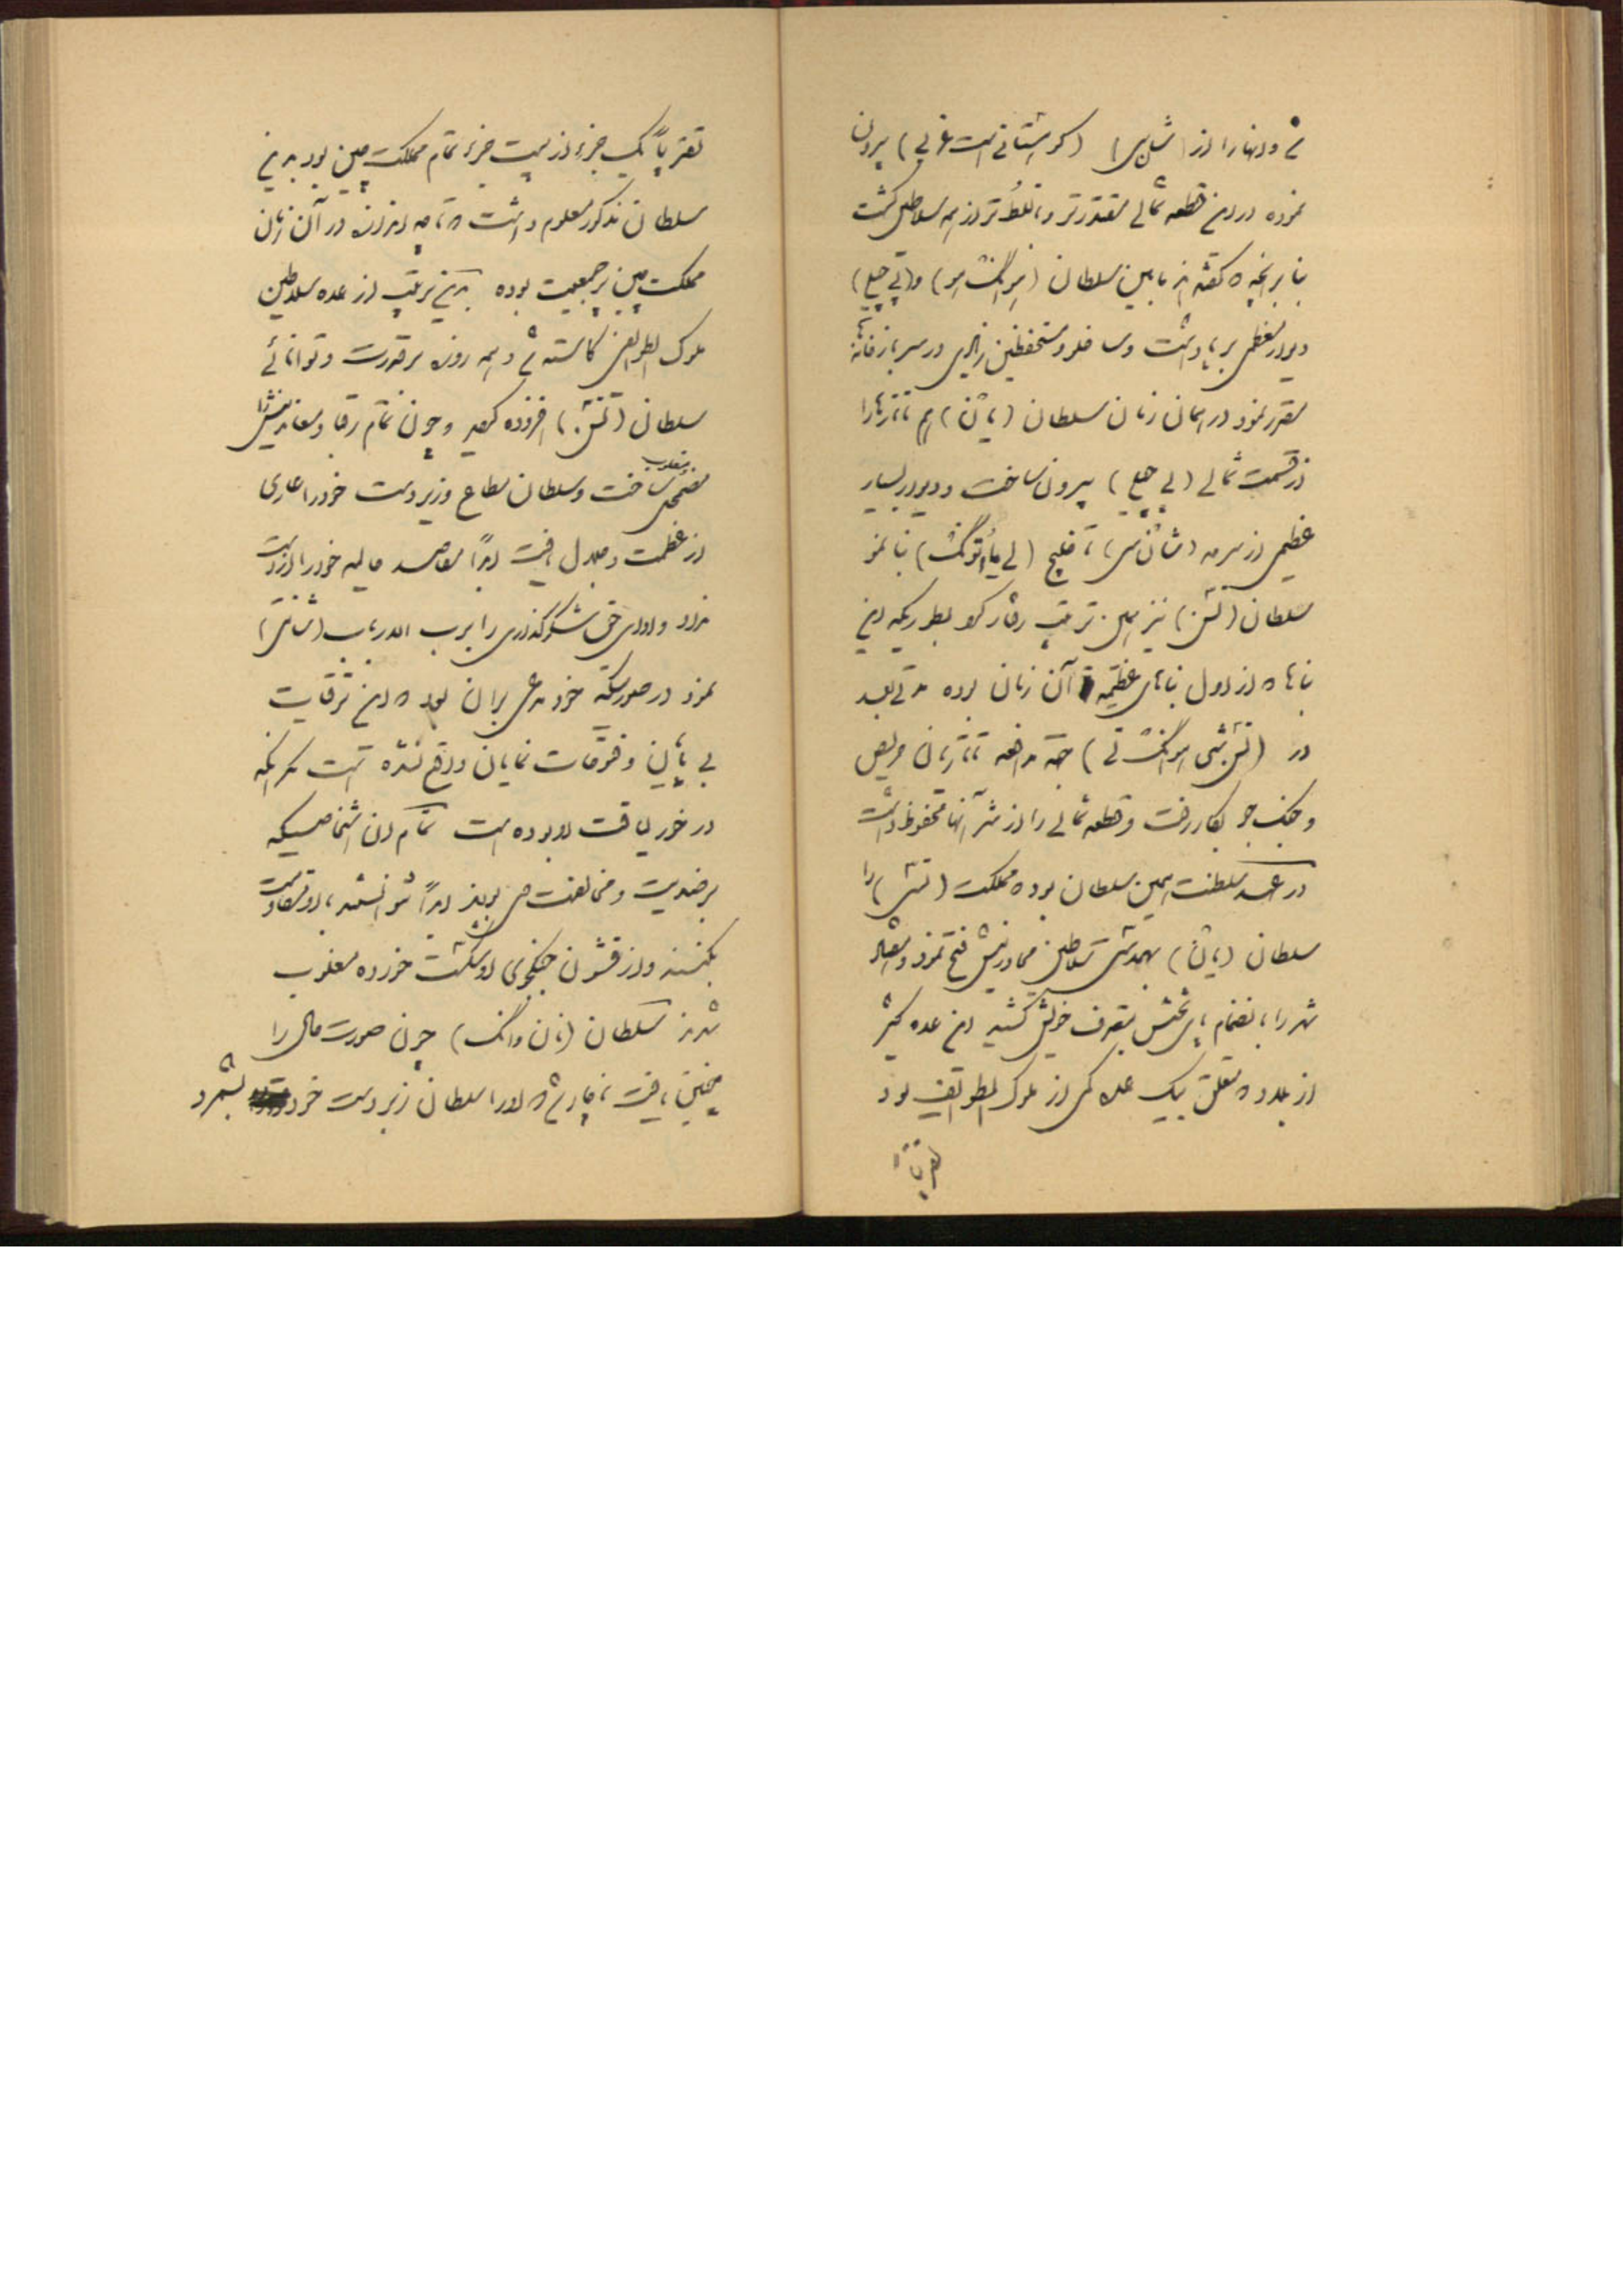 شده و آنها را از (شان‌سی) (کوهستانیست غربی) بیرون
نموده در این قطعه شمالی مقتدرتر و با تسلط‌تر از همه سلاطین گشت
بنا برانچه که گفته‌اند مابین سلطان و
دیوار معظمی برپا داشت و ساخلو و مستحفظین زیادی در سربازخانه‌ها
مقرر نمود در همان زمان سلطان (یان) هم تاتارها را
از قسمت شمالی (پی چیلی) بیرون ساخت و دیوار بسیار
عظیمی از سرحد تا خلیج بنا نمود
سلطان (تسن) نیز بهمین ترتیب رفتار کرد بطوریکه این
بناها که از اول بناهای عظیمه آن زمان بوده مدتی بعد
در جهة مدافعه تاتاریان حریص
و جنگ جو بکار رفت و قطعه شمالی را از شر آنها محفوظ داشت
در عهد سلطنت همین سلطان بود که مملکت (تسی) را
سلطان (یان) بهمدستی سلاطین مجاورینش فتح نمود و هفتاد
شهر را بانضمام پای تختش بتصرف خویش کشید این عده کثیر
از بلاد که متعلق بیک مملکتی از ملوک الطوایف بود
تقریباً
تقریباً یک جزء از بیست جزء تمام مملکت چین بود بر این
سلطان مذکور معلوم داشت که تا چه اندازه در آن زمان
مملکت چین پرجمعیت بوده بدین ترتیب از عده سلاطین
ملوک الطوایف کاسته شد و همه روزه بر قدرت و توانائی
سلطان (تسن) افزوده گردید و چون تمام رقبا و معاندینش را
مغلوب
مضمحل ساخت و سلطان مطاع و زبردست خود را عاری
از عظمت و جلال یافت ابداً مقاصد عالیه خود را از دست
نداد و ادای حق شکرگذاری را برب الارباب (شانتی)
نمود در صورتیکه خود مدعی بر آن بود که این ترقیات
بی پایان و فتوحات نمایان واقع نشده است مگر انکه
در خور لیاقت او بوده است تمام ان اشخاصیکه
بر ضدیت و مخالفت می‌بودند ابداً نتوانستند با او مقاومت
بکنند و از قشون جنگجوی او شکست خورده مغلوب
شدند سلطان (نان وانگ) چون صورت حال را
چنین یافت ناچار شد که او را سلطان زبردست خود بشمرد